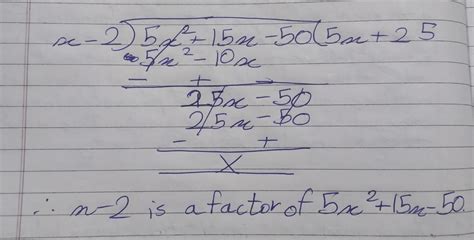 x-2)5x²+15x-50(5x+25
5x²-10x
- +
25x-50
25x-50
- +
X
∴ x-2 is a factor of 5x²+15x-50.